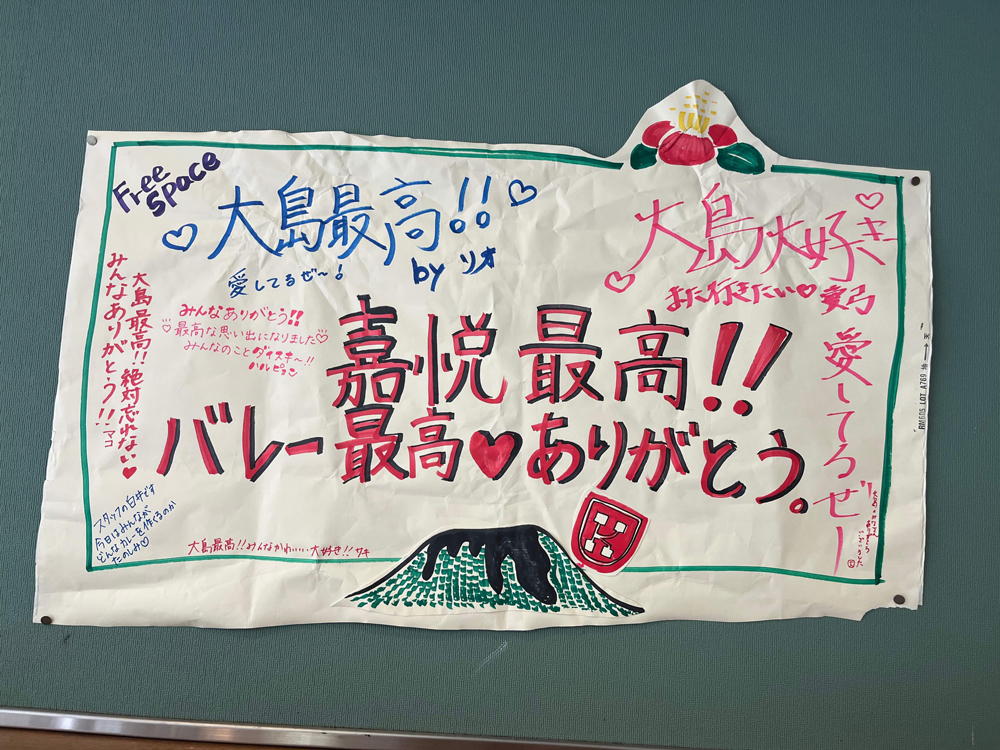 Free
Space
♡大島最高!!♡
愛してるぜ〜!
by リオ
大島大好き
また行きたい♡
愛してるぜー
大島最高!!絶対忘れない♥
みんなありがとう!!マコ
みんなありがとう!!
♡最高な思い出になりました♡
みんなのことダイスキ〜!!
ハルピョン
嘉悦最高!!
バレー最高♥ありがとう。
スタッフの臼井です
今日はみんなが
どんなカレーを作くるのか
たのしみ♡
大島最高!!みんなかわいい…大好き!!サキ
K
RM60S LOT A789